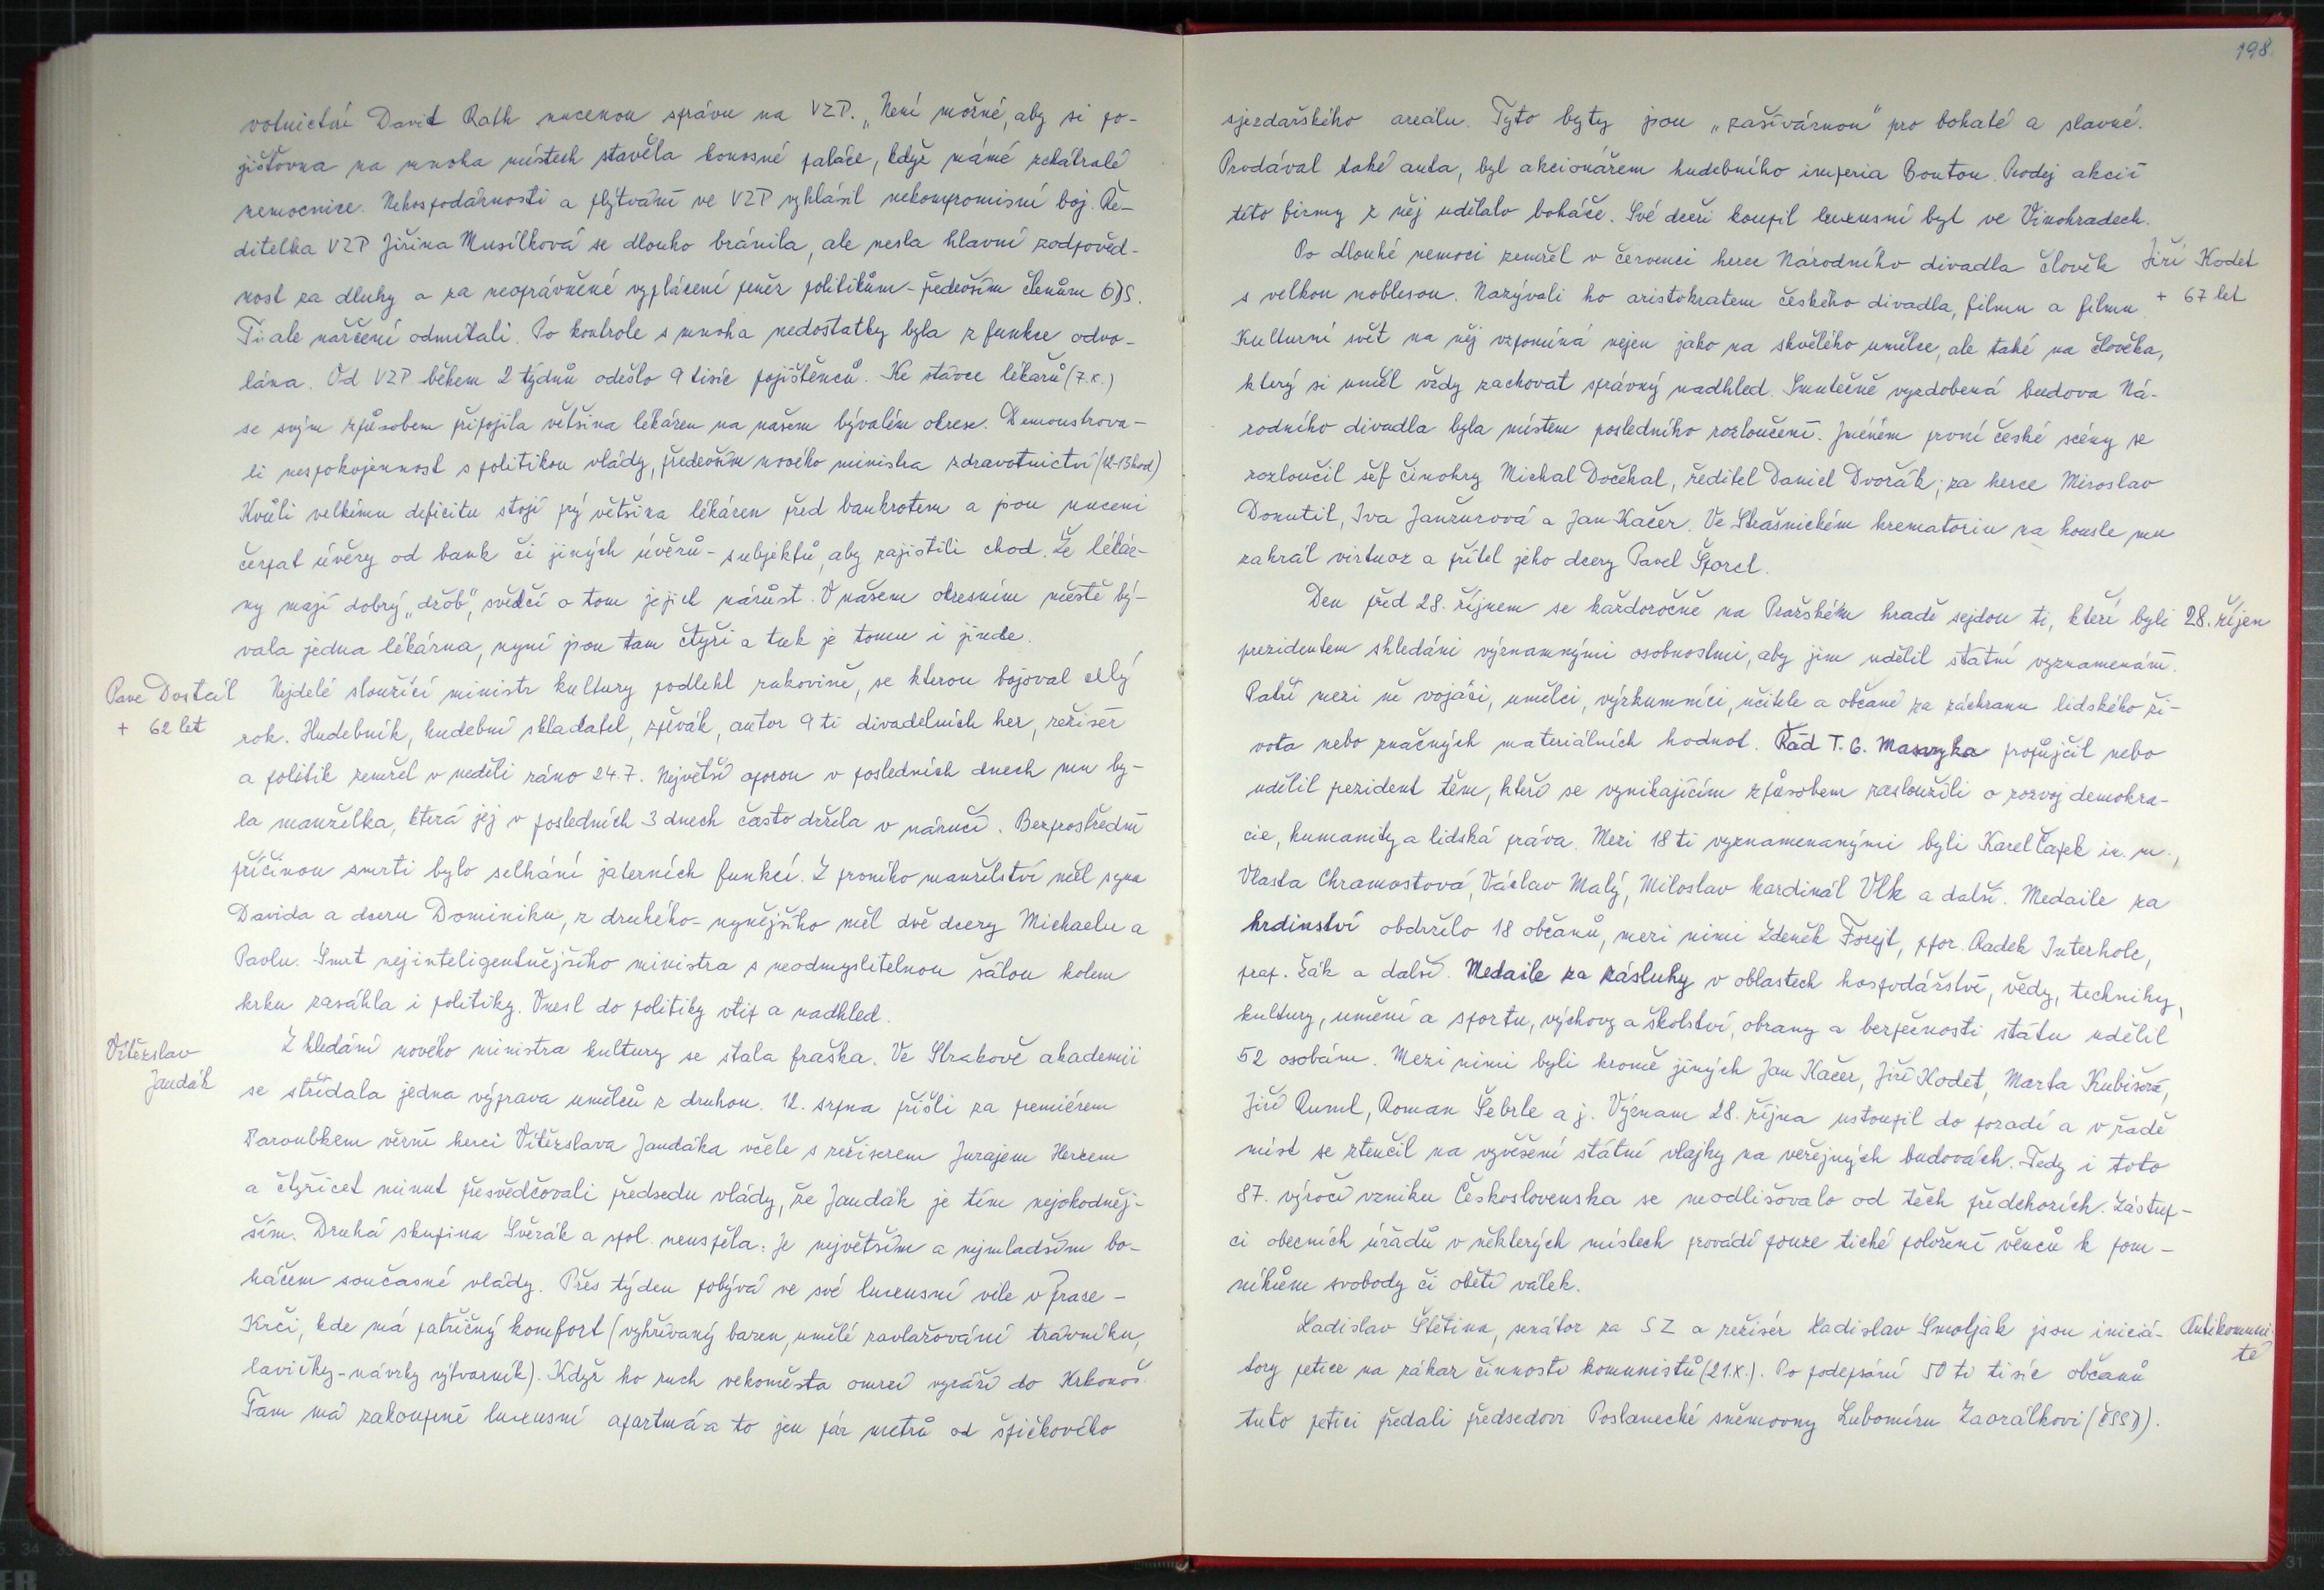 votnictví David Rath nucenou správu na VZP. „Není možné, aby si po-
jišťovna na mnoha místech stavěla honosné paláce, když máme zchátralé
nemocnice. Nehospodárnosti a plýtvání ve VZP vyhlásil nekompromisní boj. Ře-
ditelka VZP Jiřina Musílková se dlouho bránila, ale nesla hlavní zodpověd-
nost za dluhy a za neoprávněné vyplácení peněz politikům - především členům ODS.
Ti ale nařčení odmítali. Po kontrole s mnoha nedostatky byla z funkce odvo-
lána. Od VZP během 2 týdnů odešlo 9 tisíc pojištěnců. Ke stávce lékařů (7.X.)
se svým způsobem připojila většina lékáren na našem bývalém okrese. Demonstrova-
li nespokojennost s politikou vlády, především nového ministra zdravotnictví (12-13hod)
Kvůli velkému deficitu stojí prý většina lékáren před bankrotem a jsou nuceni
čerpat úvěry od bank či jiných úvěrů - subjektů, aby zajistili chod. Že lékár-
ny mají dobrý „džob", svědčí o tom jejich nárůst. V našem okresním městě bý-
vala jedna lékárna, nyní jsou tam čtyři a tak je tomu i jinde.
Pave Dostál
+ 62 let
Nejdelé sloužící ministr kultury podlehl rakovině, se kterou bojoval celý
rok. Hudebník, hudební skladatel, zpěvák, autor 9 ti divadelních her, režisér
a politik zemřel v neděli ráno 24.7. Největší oporou v posledních dnech mu by-
la manželka, která jej v posledních 3 dnech často držela v náručí. Bezprostřední
příčinou smrti bylo selhání jaterních funkcí. Z prvního manželství měl syna
Davida a dceru Dominiku, z druhého - nynějšího měl dvě dcery Michaelu a
Pavlu. Smrt nejinteligentnějšího ministra s neodmyslitelnou šálou kolem
krku zasáhla i politiky. Vnesl do politiky vtip a nadhled.
Vítězslav
Jandák
Z hledání nového ministra kultury se stala fraška. Ve Strakově akademii
se střídala jedna výprava umělců z druhou. 12. srpna přišli za premiérem
Paroubkem věrní herci Vítězslava Jandáka včele s režiserem Jurajem Herzem
a čtyřicet minut přesvědčovali předsedu vlády, že Jandák je tím nejvhodněj-
ším. Druhá skupina Svěrák a spol. neuspěla. Je největším a nejmladším bo-
háčem současné vlády. Přes týden pobývá ve své luxusní vile v Praze -
Krči, kde má patřičný komfort (vyhřívaný bazen, umělé zavlažování trávníku,
lavičky - návrhy výtvarník). Když ho ruch velkoměsta omrzí vyráží do Krkonoš.
Tam má zakoupené luxusní apartmá a to jen pár metrů od špičkového
198
sjezdařského areálu. Tyto byty jsou „zašívárnou" pro bohaté a slavné.
Prodával také auta, byl akcionářem hudebního imperia Bonton. Prodej akcií
této firmy z něj udělalo boháče. Své dceři koupil luxusní byt ve Vinohradech.
Jiří Kodet
+ 67 let
Po dlouhé nemoci zemřel v červenci herec Národního divadla člověk
s velkou noblesou. Nazývali ho aristokratem českého divadla, filmu a filmu.
Kulturní svět na něj vzpomíná nejen jako na skvělého umělce, ale také na člověka,
který si uměl vždy zachovat správný nadhled. Smutečně vyzdobená budova Ná-
rodního divadla byla místem posledního rozloučení. Jménem první české scény se
rozloučil šéf činohry Michal Dočekal, ředitel Daniel Dvořák; za herce Miroslav
Donutil, Iva Janžurová a Jan Kačer. Ve Strašnickém krematoriu na housle mu
zahrál virtuoz a přítel jeho dcery Pavel Šporcl.
28. říjen
Den před 28. říjnem se každoročně na Pražském hradě sejdou ti, kteří byli
prezidentem shledáni významnými osobnostmi, aby jim udělil státní vyznamenání.
Patří mezi ně vojáci, umělci, výzkumníci, učitele a občané za záchranu lidského ži-
vota nebo značných materiálních hodnot. Řád T. G. Masaryka propůjčil nebo
udělil pezident těm, kteří se vynikajícím způsobem zasloužili o rozvoj demokra-
cie, humanity a lidská práva. Mezi 18 ti vyznamenanými byli Karel Čapek in. m.,
Vlasta Chramostová, Václav Malý, Miloslav kardinál Vlk a další. Medaile za
hrdinství obdrželo 18 občanů, mezi nimi Zdeněk Forejt, ppor. Radek Interhole,
prap. Žák a další. Medaile za zásluhy v oblastech hospodářství, vědy, techniky,
kultury, umění a sportu, výchovy a školství, obrany a bezpečnosti státu udělil
52 osobám. Mezi nimi byli kromě jiných Jan Kačer, Jiří Kodet, Marta Kubišová,
Jiří Ruml, Roman Šebrle a j. Význam 28. října ustoupil do pozadí a v řadě
míst se ztenčil na vyvěšení státní vlajky na veřejných budovách. Tedy i toto
87. výročí vzniku Československa se neodlišovalo od těch předchozích. Zástup-
ci obecních úřadů v některých místech provádí pouze tiché položení věnců k pom-
níkům svobody či obětí válek.
Antikomunis-
té
Ladislav Štětina, senátor za SZ a režisér Ladislav Smoljak jsou iniciá-
tory petice na zákaz činnosti komunistů (21.X.). Po podepsání 50 ti tisíc občanů
tuto petici předali předsedovi Poslanecké sněmovny Lubomíru Zaorálkovi (ČSSD).